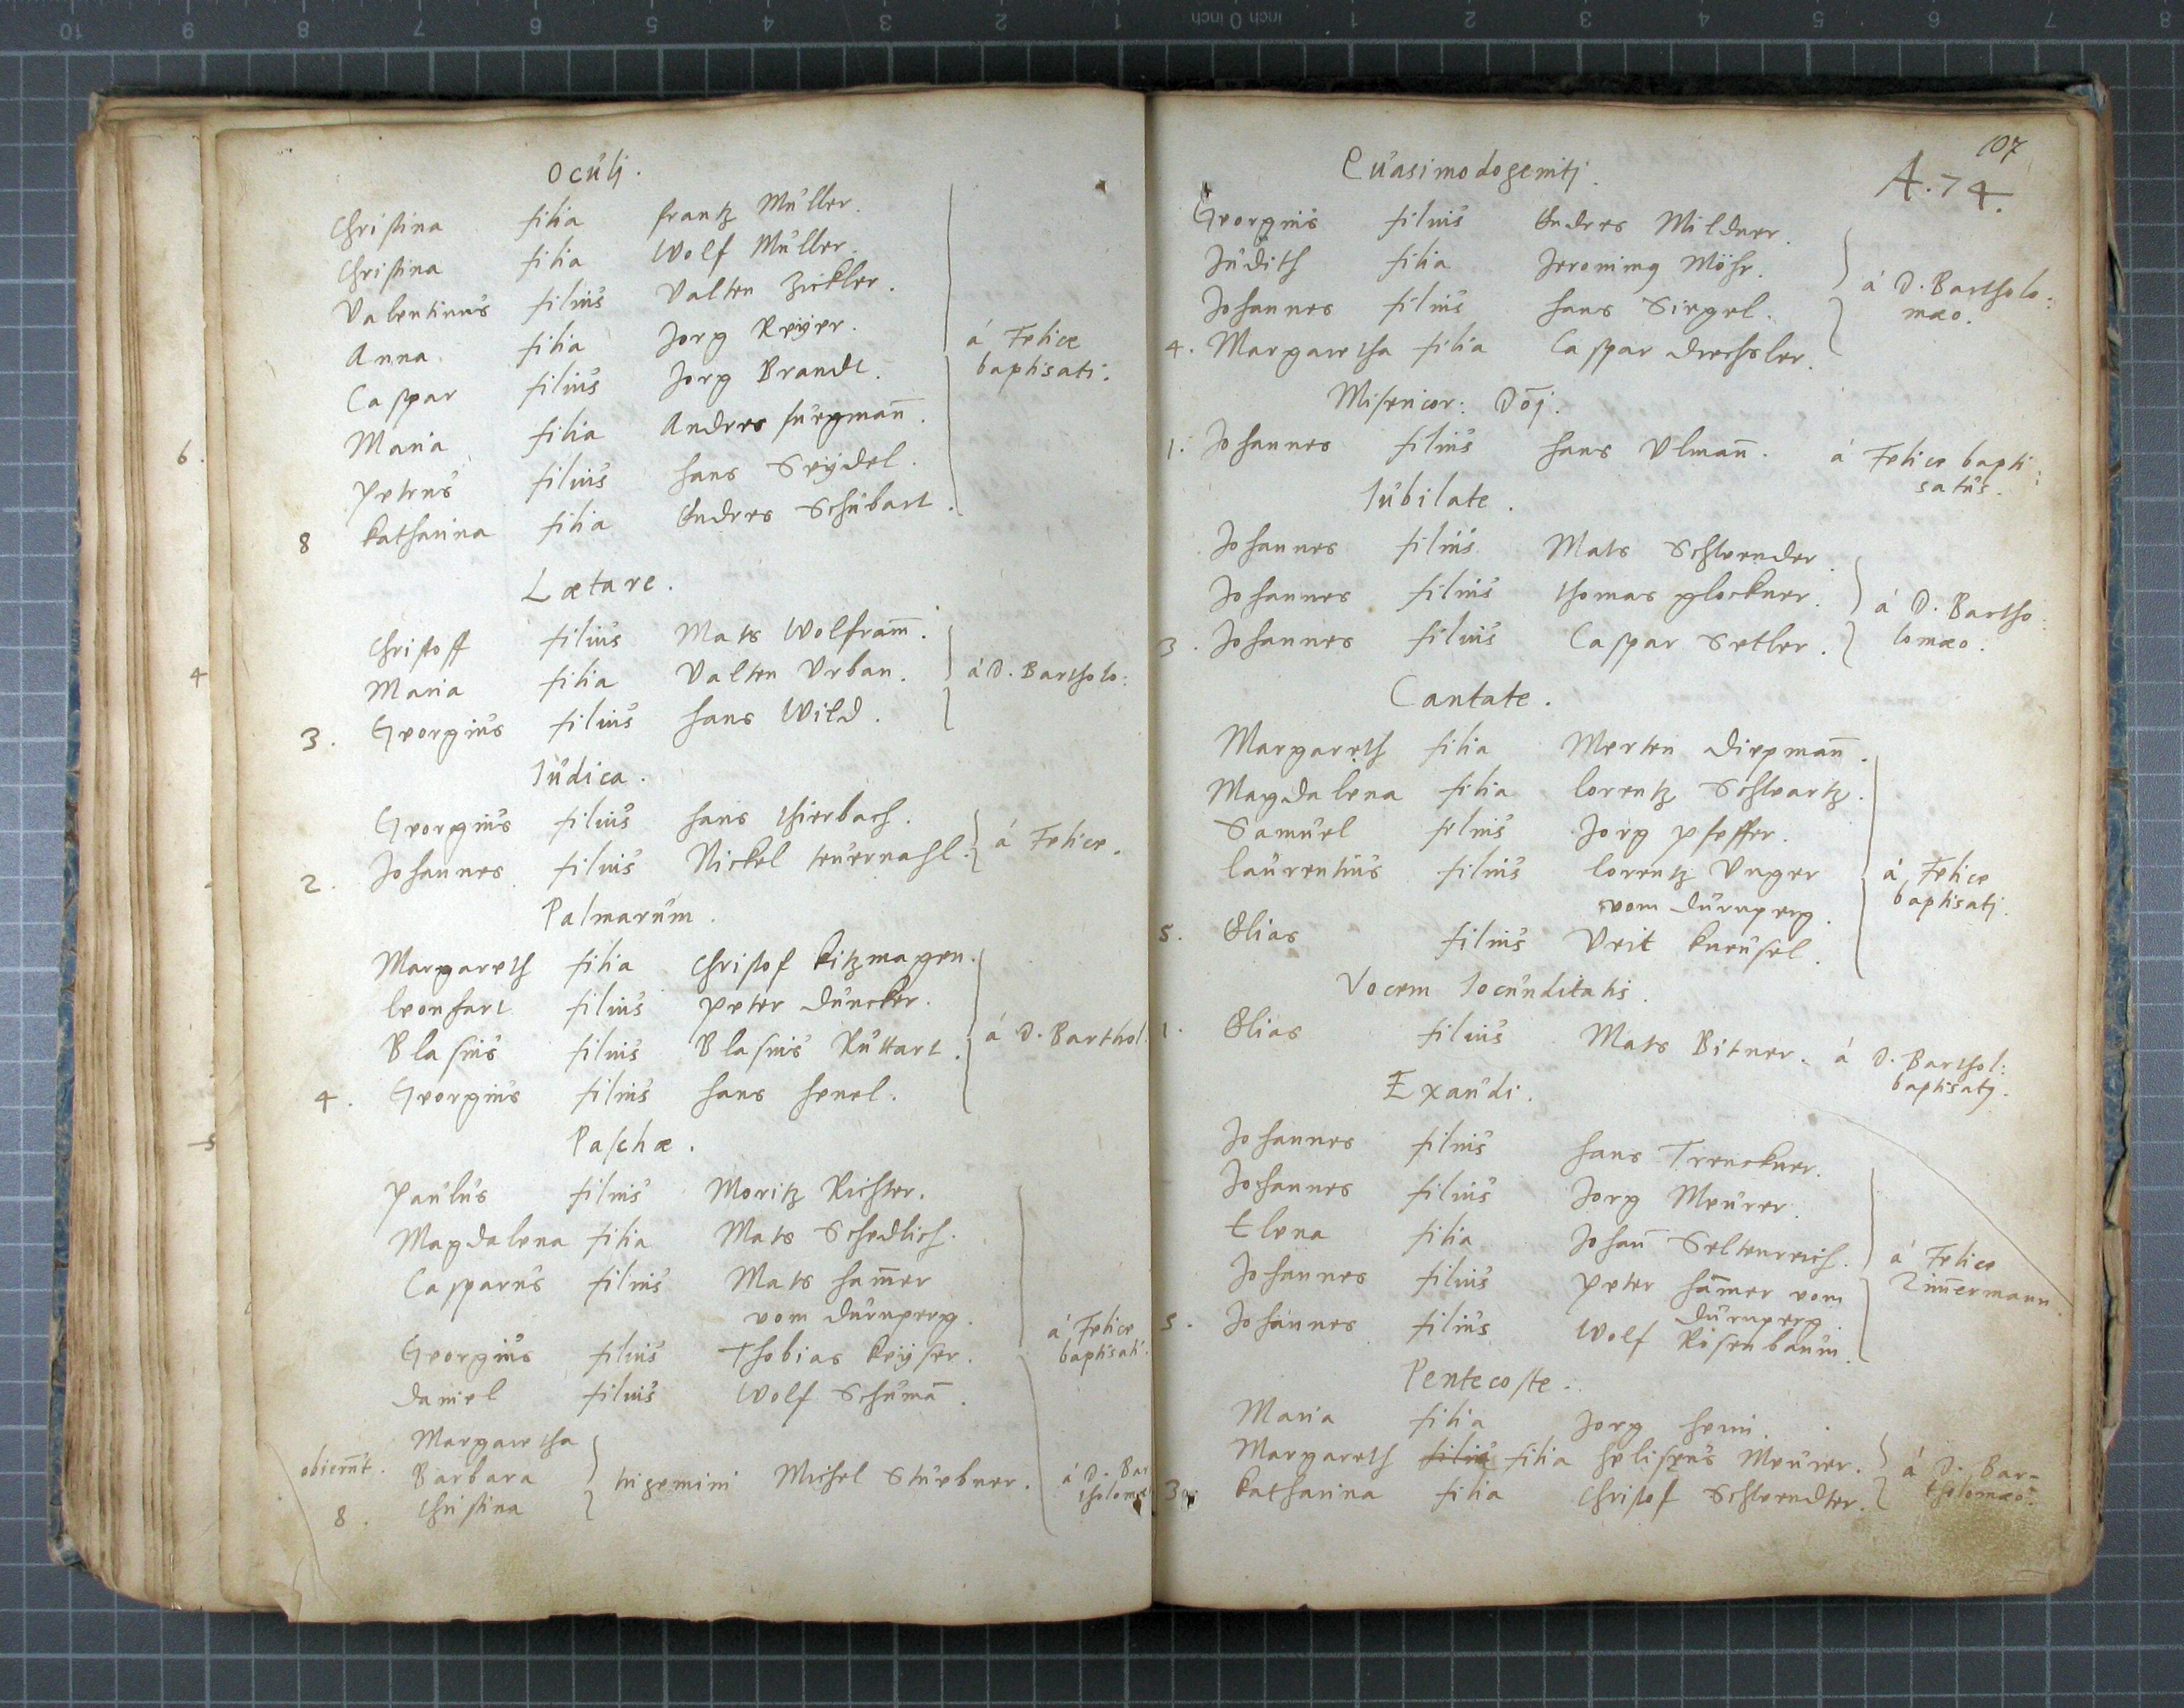 Oculj.
Christina filia frantz Müller.
Christina filia Wolf Müller.
Valentinus filius Valten Zickler.
Anna filia Jorg Reÿer.
Caspar filius Jorg Brandt.
á Felice
baptisati.
Maria filia Andres
Petrus filius hans Seÿdel.
8 Katharina filia Endres Schubart.
6.
Lætare.
Christoff filius Mats Wolfram̄.
Maria filia Valten Urban.
á D. Bartholo:
3. Georgius filius hans Wild.
4
Iudica.
Georgius filius hans thierbach.
2. Johannes filius Nickel teuernahl.
á Felice.
Palmarum.
Margareth filia Christof Kitzmagen.
leonhart filius Peter Duncker.
Blasius filius Blasius Ruttart.
á D. Barthol.
4. Georgius filius hans henel.
5
Paschæ.
Paulus filius Moritz Richter.
Magdalena filia Mats Schedlich.
Casparus filius Mats ham̄er
vom Durnperg.
Georgius filius Thobias Keÿser.
á Felice
baptisati.
Daniel filius Wolf Schumā.
Margaretha
obierūt. Barbara trigemini Michel Stuebner.
á D. Bar
tholomæ
8. Christina
107
A. 74.
Quasimodogenitj.
Georgius filius Endres Mildner.
Judith filia Jeronimg Möhr.
Johannes filius hans Siegel.
á D. Bartholo:
mæo.
4. Margaretha filia Caspar Drechsler.
Misericor: Dōj.
1. Johannes filius hans Ulman̄. á Felice bapti:
satus.
Iubilate.
Johannes filius Mats Schwender.
Johannes filius thomas glockner.
á D. Bartho:
lomæo.
3. Johannes filius Caspar Setler.
Cantate.
Margareth filia Merten Diepman̄.
Magdalena filia lorentz Schwartz.
Samuel filius Jorg Pfeffer.
laurentius filius lorentz Unger
vom Durnperg.
á Felice
baptisatj.
5. Elias filius Veit Kneusel.
Vocem Iocunditatis.
1. Elias filius Mats Bitner. á D. Barthol:
baptisatg.
Exaudi.
Johannes filius hans Trenckner.
Johannes filius Jorg Meurer.
Elena filia Johan̄ Seltenreich.
á Felice
Zim̄ermann.
Johannes filius Peter ham̄er vom
Durnperg.
5. Johannes filius Wolf Rosenbaum.
Pentecoste.
Maria filia Jorg
Margareth filius filia heliseus Meurer.
á D. Bar-
tholomæo.
3. Katharina filia Christof Schwendter.